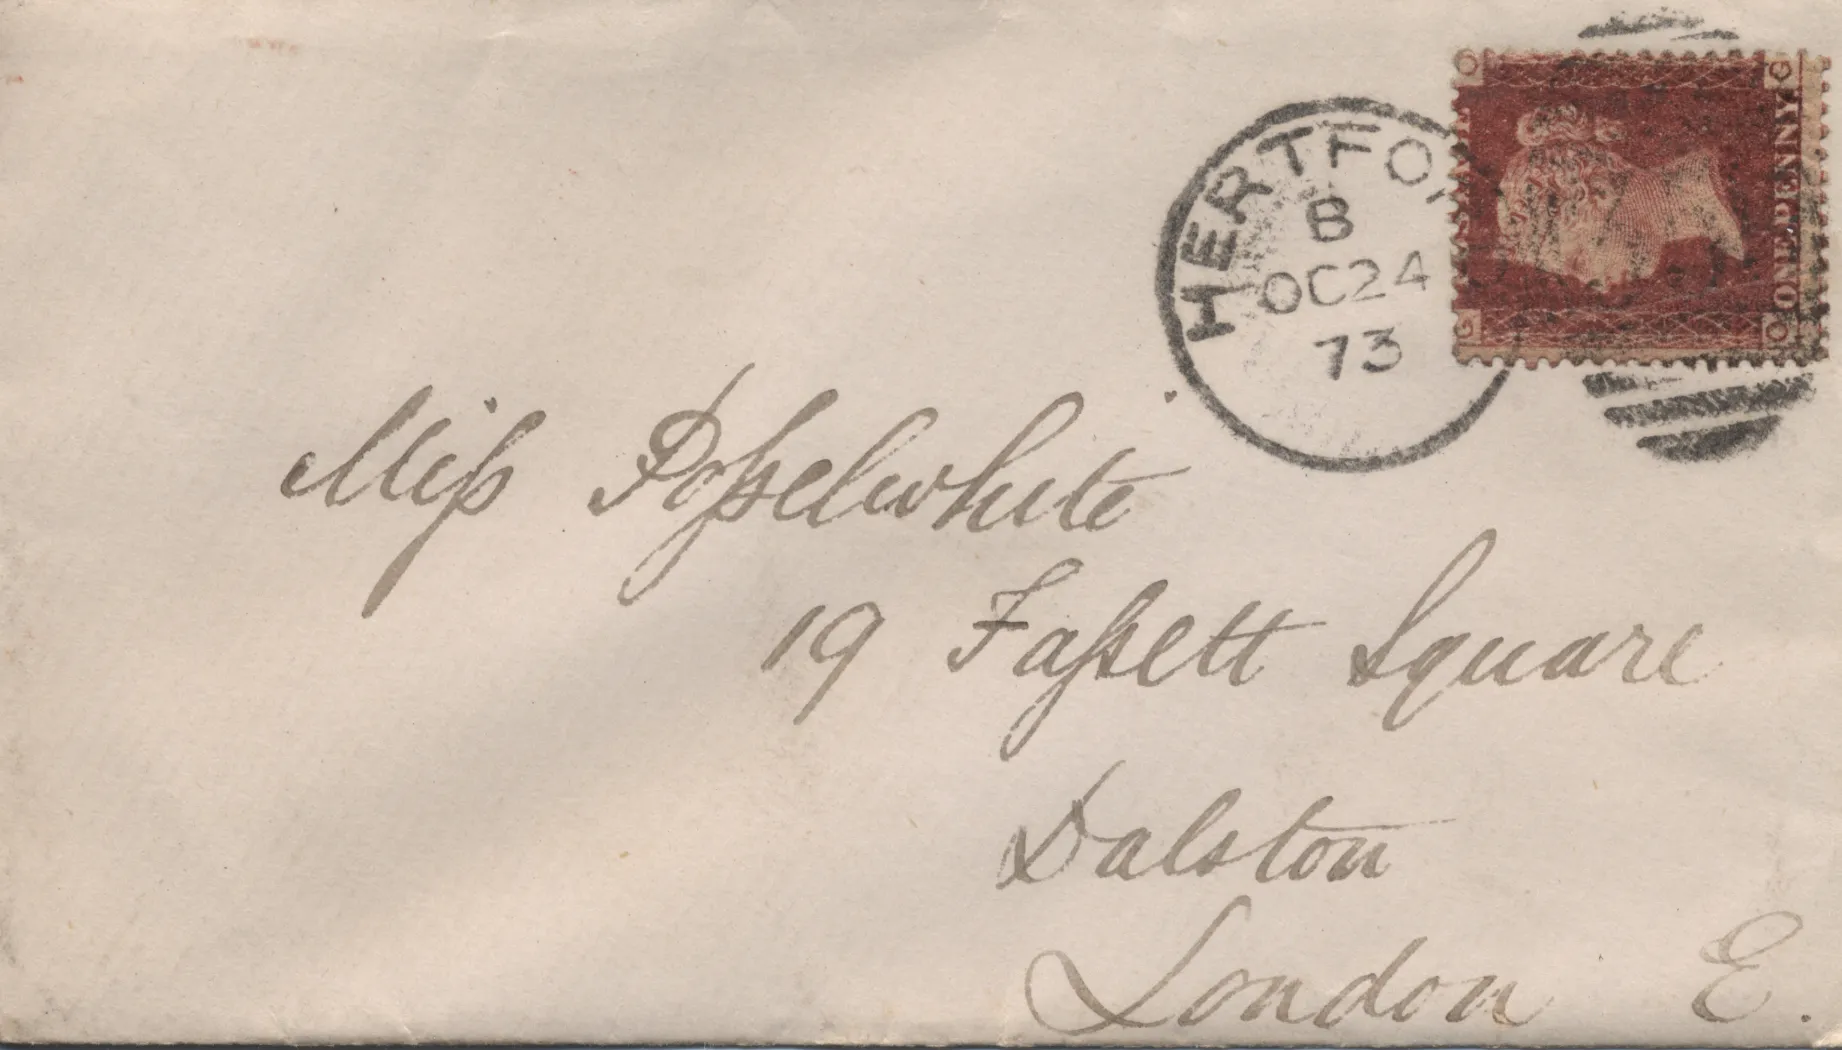 HERTFO
B
OC24
73
O G
ONE PENNY
G O
Miſs Poſselwhite
19 Faſsett Square
Dalston
London E.